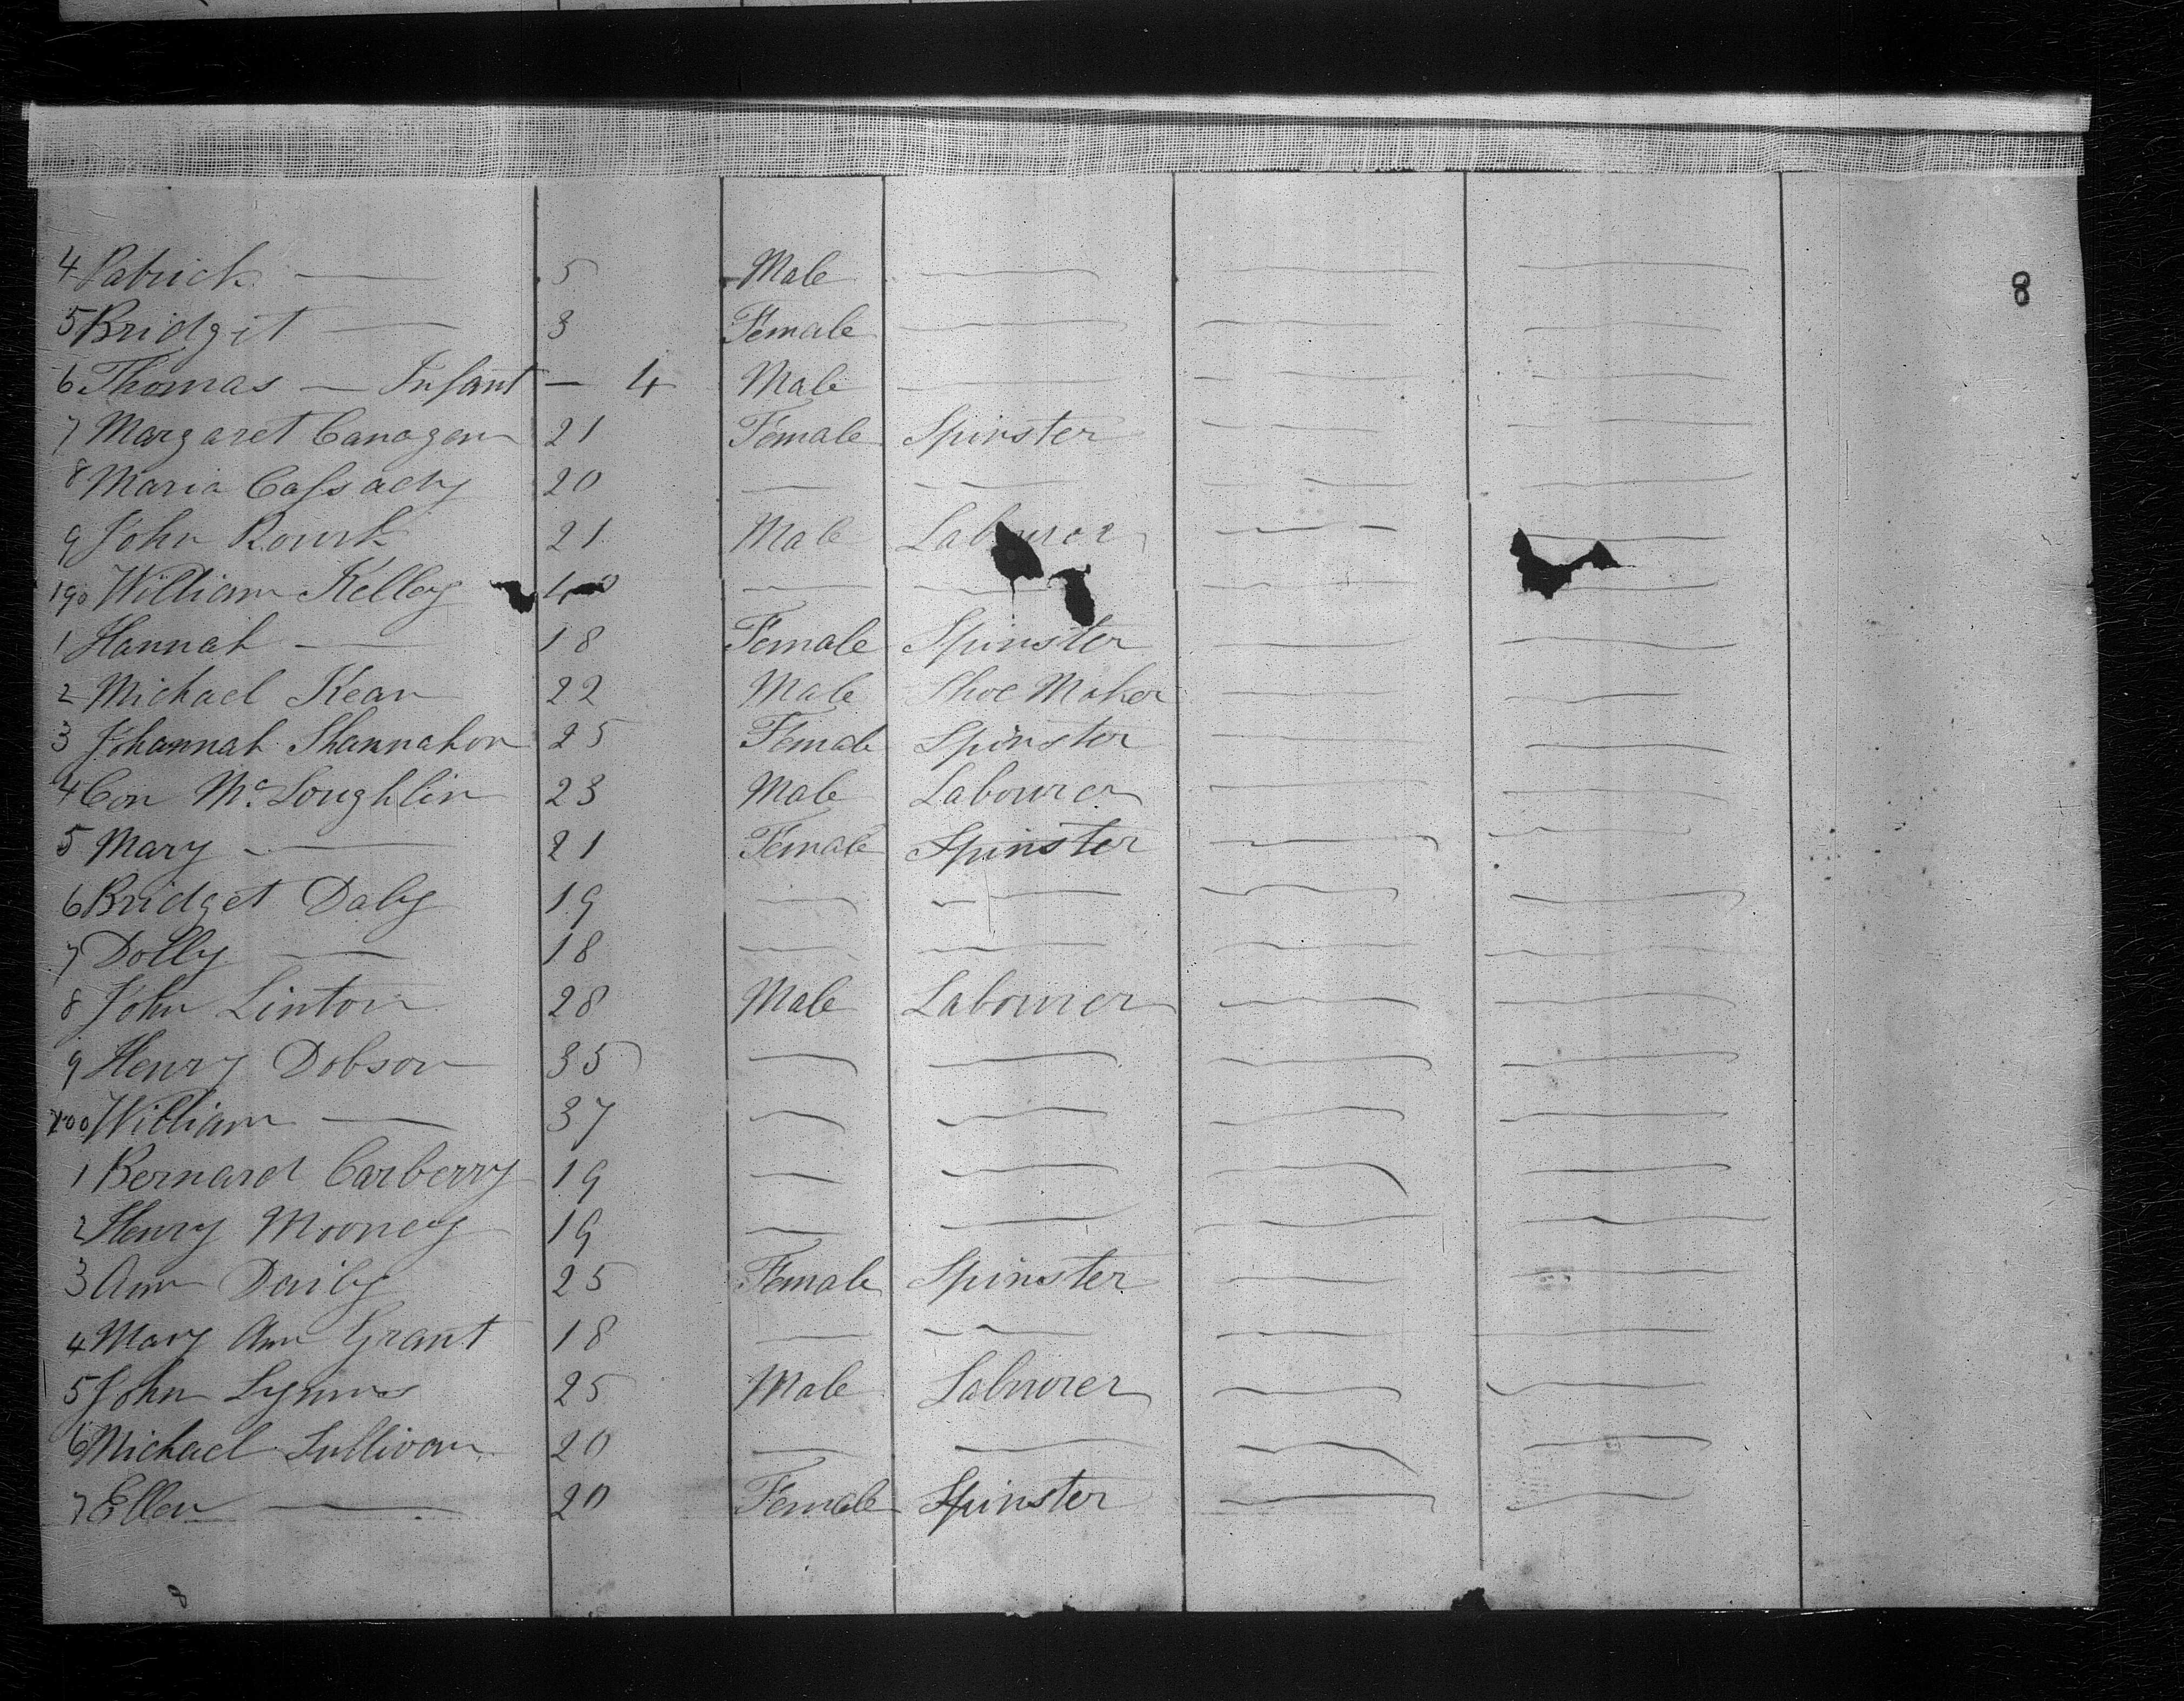 4 Patrick — 5 Male — — —
8
5 Bridgit — 3 Female — — —
6 Thomas — Infant — 4 Male — — —
7 Margaret Canagen 21 Female Spinster — —
8 Maria Cassady 20 — — — —
9 John Rourk 21 Male Labourer — —
190 William Kelley — — — —
1 Hannah — 18 Female Spinster — —
2 Michael Kean 22 Male Shoe Maker — —
3 Johannah Shannahon 25 Female Spinster — —
4 Con McLoughlin 23 Male Labourer — —
5 Mary — 21 Female Spinster — —
6 Bridget Daly 19 — — — —
7 Dolly — 18 — — — —
8 John Linton 28 Male Labourer — —
9 Henry Dobson 35 — — — —
200 William — 37 — — — —
1 Bernard Carberry 19 — — — —
2 Henry Mooney 19 — — — —
3 Ann Daily 25 Female Spinster — —
4 Mary Ann Grant 18 — — — —
5 John 25 Male Labourer — —
6 Michael Sullivan 20 — — — —
7 Ellen — 20 Female Spinster — —
8